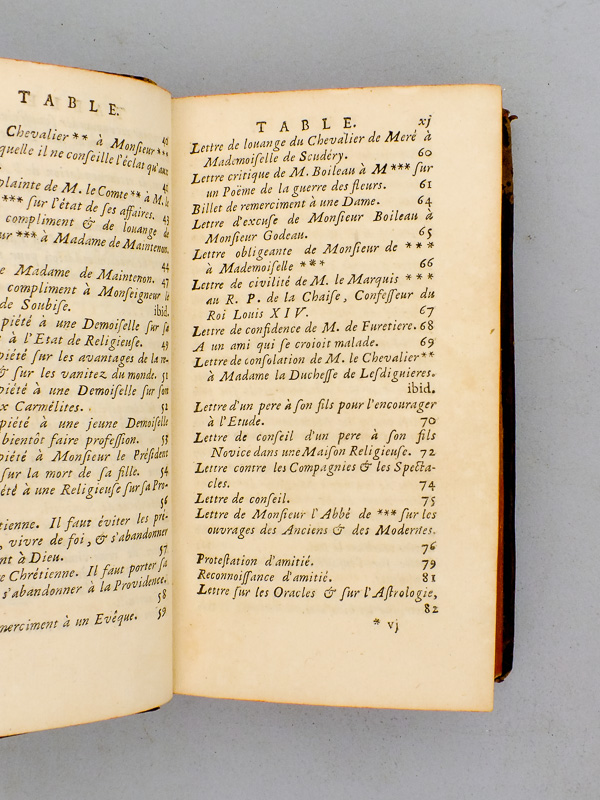 TABLE.
Chevalier ** à Monsieur ***
quelle il ne conseille l'éclat qu'aux
plainte de M. le Comte ** à M. le
*** sur l'état de ses affaires. 43
compliment & de louange de
ur *** à Madame de Maintenon.
44
e Madame de Maintenon. 47
compliment à Monseigneur le
de Soubise. ibid.
piété à une Demoiselle sur sa
à l'Etat de Religieuse. 49
piété sur les avantages de la re-
& sur les vanitez du monde. 51
piété à une Demoiselle sur son
x Carmélites. 52
piété à une jeune Demoiselle
bientôt faire profession. 53
piété à Monsieur le Président
sur la mort de sa fille. 54
iété à une Religieuse sur sa Pro-
56
étienne. Il faut éviter les pré-
, vivre de foi, & s'abandonner
nt à Dieu. 57
e Chrétienne. Il faut porter sa
s'abandonner à la Providence.
58
merciment à un Evêque. 59
TABLE. xj
Lettre de louange du Chevalier de Meré à
Mademoiselle de Scudéry. 60
Lettre critique de M. Boileau à M *** sur
un Poëme de la guerre des fleurs. 61
Billet de remerciment à une Dame. 64
Lettre d'excuse de Monsieur Boileau à
Monsieur Godeau. 65
Lettre obligeante de Monsieur de ***
à Mademoiselle *** 66
Lettre de civilité de M. le Marquis ***
au R. P. de la Chaise, Confesseur du
Roi Louis XIV. 67
Lettre de confidence de M. de Furetiere. 68
A un ami qui se croioit malade. 69
Lettre de consolation de M. le Chevalier **
à Madame la Duchesse de Lesdiguieres.
ibid.
Lettre d'un pere à son fils pour l'encourager
à l'Etude. 70
Lettre de conseil d'un pere à son fils
Novice dans une Maison Religieuse. 72
Lettre contre les Compagnies & les Specta-
cles. 74
Lettre de conseil. 75
Lettre de Monsieur l'Abbé de *** sur les
ouvrages des Anciens & des Modernes.
76
Protestation d'amitié. 79
Reconnoissance d'amitié. 81
Lettre sur les Oracles & sur l'Astrologie,
82
* vj